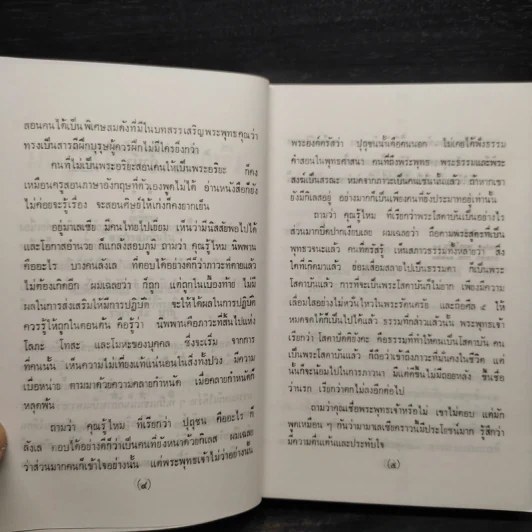 สอนคนได้เป็นพิเศษสมดังที่มีในบทสรรเสริญพระพุทธคุณว่า
ทรงเป็นสารถีฝึกบุรุษผู้ควรฝึกไม่มีใครยิ่งกว่า
คนที่ไม่เป็นพระอริยะสอนคนให้เป็นพระอริยะ ก็คง
เหมือนครูสอนภาษาอังกฤษที่ตัวเองพูดไม่ได้ อ่านหนังสือก็ยัง
ไม่ค่อยจะรู้เรื่อง จะสอนศิษย์ให้เก่งก็คงยากเย็น
อยู่มาเลเซีย มีคนไทยไปเยี่ยม เห็นว่ามีนิสัยพอไปได้
และโอกาสอำนวย ก็แกล้งสอบภูมิ ถามว่า คุณรู้ไหม นิพพาน
คืออะไร บางคนลังเล ที่ตอบได้อย่างดีก็ว่าภาวะที่ตายแล้ว
ไม่ต้องเกิดอีก ผมเฉลยว่า ก็ถูก แต่ถูกในเบื้องท้าย ไม่มี
ผลในการส่งเสริมให้มีการปฏิบัติ จะให้ได้ผลในการปฏิบัติ
ควรรู้ให้ถูกในตอนต้น คือรู้ว่า นิพพานคือภาวะที่สิ้นไปแห่ง
โลภะ โทสะ และโมหะของบุคคล ซึ่งจะเริ่ม จากการ
ที่คนนั้น เห็นความไม่เที่ยงแท้แน่นอนในสิ่งทั้งปวง มีความ
เบื่อหน่าย ตามมาด้วยความคลายกำหนัด เมื่อคลายกำหนัดก็
หลุดพ้น
ถามว่า คุณรู้ไหม ที่เรียกว่า ปุถุชน คืออะไร ก็
ลังเล ตอบได้อย่างดีก็ว่าเป็นคนที่ยังหนาด้วยกิเลส ผมเฉลย
ว่าส่วนมากคนก็เข้าใจอย่างนั้น แต่พระพุทธเจ้าไม่ว่าอย่างนั้น
(๔)
พระองค์ตรัสว่า ปุถุชนนั้นคือคนนอก ไม่เคยได้ฟังธรรม
คำสอนในพุทธศาสนา คนที่ถึงพระพุทธ พระธรรมและพระ
สงฆ์เป็นสรณะ หมดจากภาวะเป็นคนเช่นนั้นแล้ว ถ้าหากเขา
ยังมีกิเลสอยู่ อย่างมากก็เป็นเพียงคนที่ยังประมาทอยู่เท่านั้น
ถามว่า คุณรู้ไหม ที่เรียกว่าพระโสดาบันเป็นอย่างไร
ส่วนมากมักปิดปากเงียบเลย ผมเฉลยว่า ถือตามพระสูตรที่เป็น
พุทธวจนะแล้ว คนที่ตรัสรู้ เห็นสภาวธรรมทั้งหลายว่า สิ่ง
ใดที่เกิดมาแล้ว ย่อมเสื่อมสลายไปเป็นธรรมดา ก็เป็นพระ
โสดาบันแล้ว การที่จะเป็นพระโสดาบันก็ไม่ยาก เพียงมีความ
เลื่อมใสอย่างไม่หวั่นไหวในพระรัตนตรัย และถือศีล ๕ ให้
หมดจดได้ก็เป็นไปได้แล้ว ธรรมที่กล่าวแล้วนั้น พระพุทธเจ้า
เรียกว่า โสตาปัตติยังคะ คือธรรมที่ทำให้คนเป็นโสดาบัน คน
เป็นพระโสดาบันแล้ว ก็ถือว่าเข้าถึงภาวะที่มั่นคงในชีวิต แต่
นั้นก็จะน้อมไปในการภาวนา มีแต่ดีขึ้นไม่มีถอยหลัง ขึ้นชื่อ
ว่านรก เรียกว่าตกไม่ลงอีกต่อไป
ถามว่าคุณเชื่อพระพุทธเจ้าหรือไม่ เขาไม่ตอบ แต่มัก
พูดเหมือน ๆ กันว่ามามาเลเซียคราวนี้มีประโยชน์มาก รู้สึกว่า
มีความตื่นเต้นและประทับใจ
(๕)